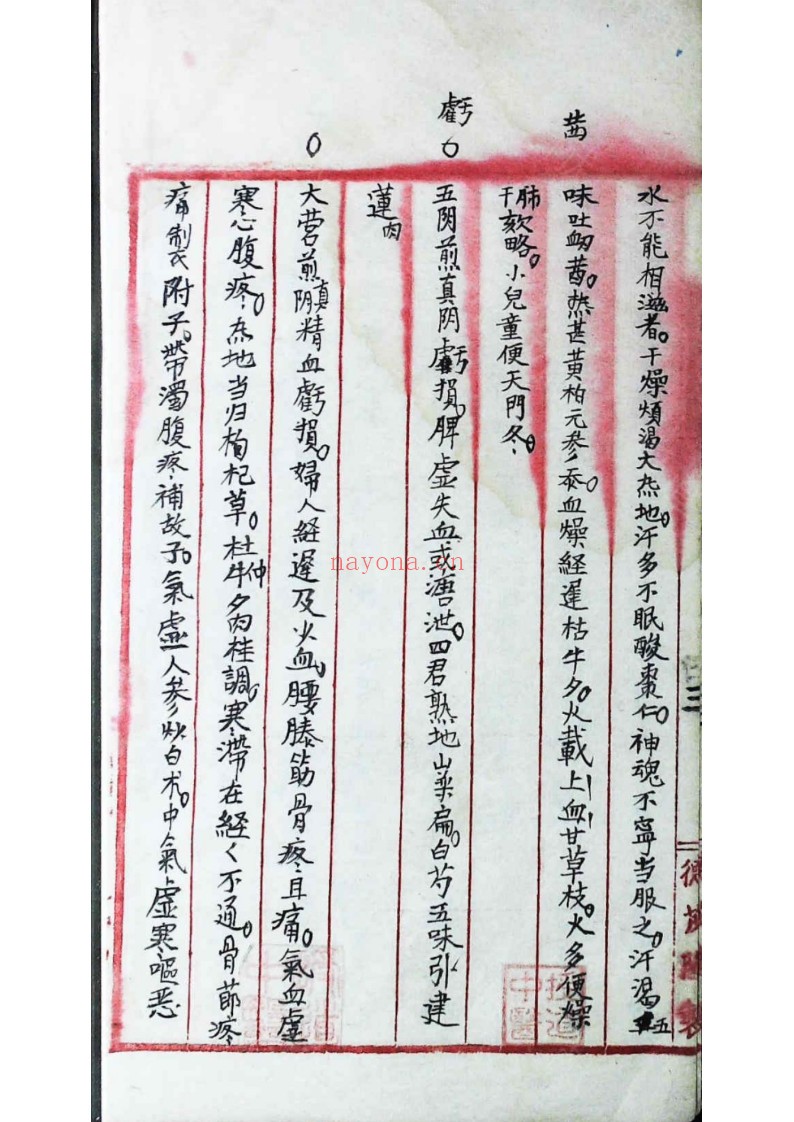 水不能相滋者。干燥煩渴大熱地。汗多不眠酸棗仁。神魂不寧当服之。汗渴五
茜
味吐衂茜。热甚黄柏元參。血燥経遲枯牛夕。火載上血甘草枝。火多便燥
肺干欬略。小兒童便天門冬。
虧
五阴煎真阴虧損。脾虚失血或溏泄。四君熟地山薬扁。白芍五味引建
蓮肉
大营煎真阴精血虧損。婦人経遲及少血。腰膝筋骨疼且痛。氣血虚
寒心腹疼。熟地当归枸杞草。杜仲牛夕肉桂調。寒滞在経く不通。骨節疼
痛制附子。帶濁腹疼補故子。氣虚人參炒白术。中氣虚寒嘔恶
nayona.cn
三
中醫